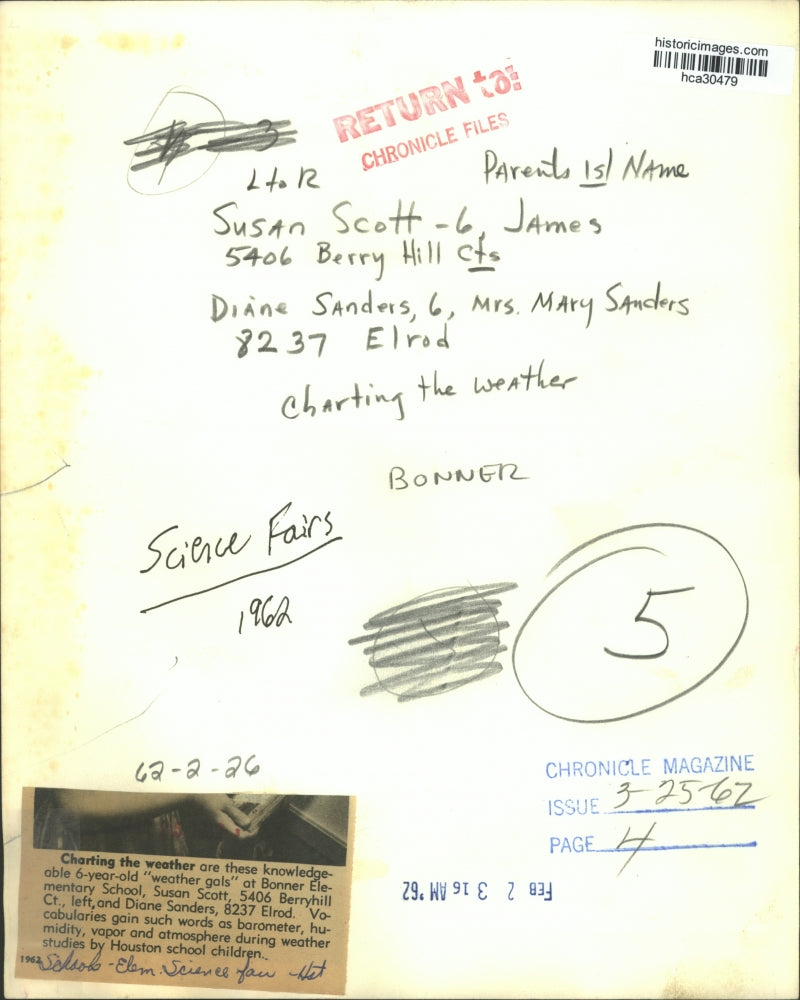 historicimages.com
hca30479
RETURN to:
CHRONICLE FILES
3
L to R
Parents 1st NAme
Susan Scott - 6, James
5406 Berry Hill Cts
Diane Sanders, 6, Mrs. Mary Sanders
8237 Elrod
Charting the weather
BONNER
Science Fairs
1962
5
62-2-26
CHRONICLE MAGAZINE
ISSUE 3-25-62
PAGE 4
FEB 2 3 16 AM '62
Charting the weather are these knowledge-
able 6-year-old "weather gals" at Bonner Ele-
mentary School, Susan Scott, 5406 Berryhill
Ct., left, and Diane Sanders, 8237 Elrod. Vo-
cabularies gain such words as barometer, hu-
midity, vapor and atmosphere during weather
studies by Houston school children.
1962 Schools - Elem. Science fair - Hst